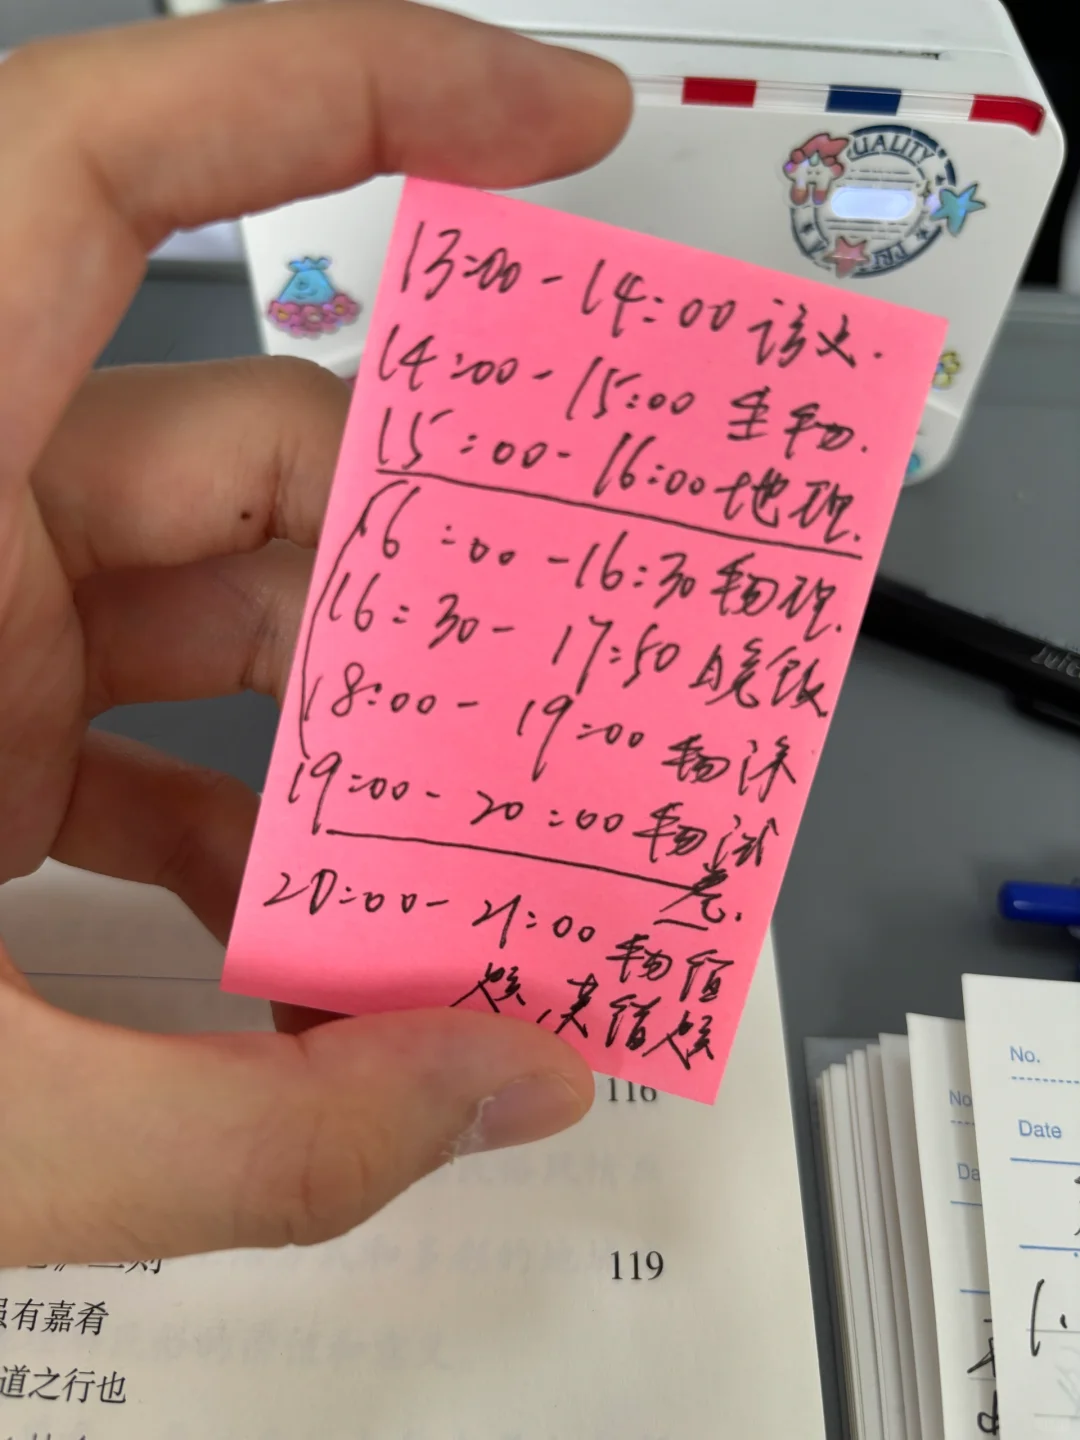 13:00-14:00 语文.
14:00-15:00 生物.
15:00-16:00 地理.
16:00-16:30 物理.
16:30-17:50 晚饭
18:00-19:00 物
19:00-20:00 物试
卷.
20:00-21:00 物
错题
UALITY
116
119
有嘉肴
道之行也
No.
Date
No
Da